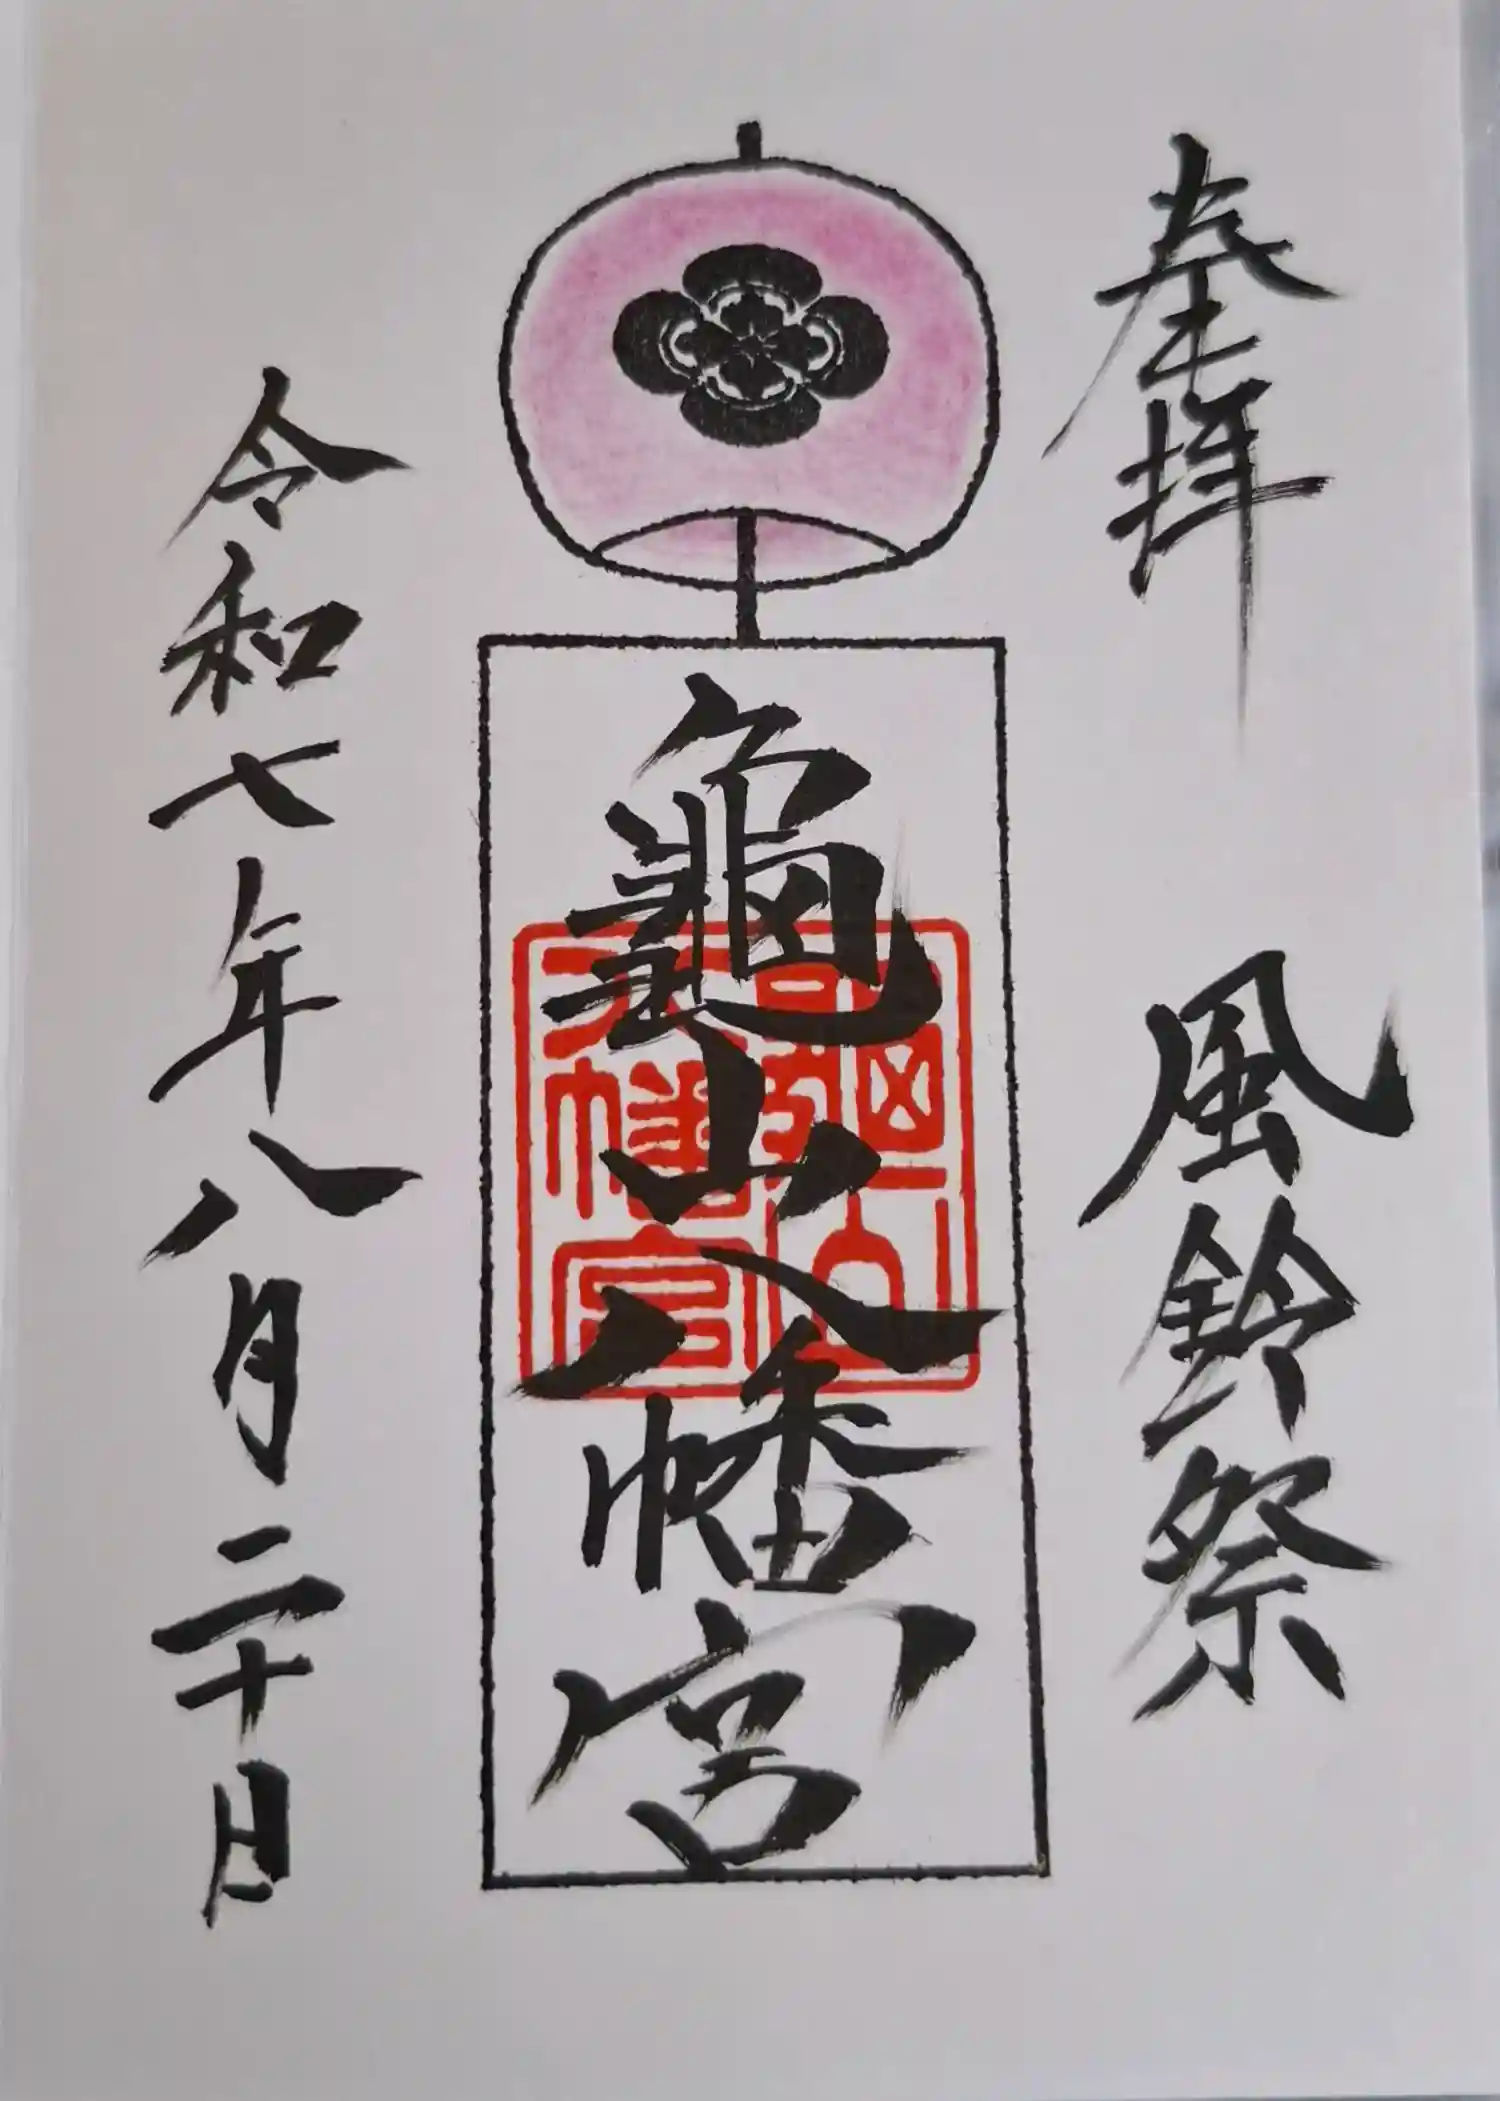 奉拝
風鈴祭
龜山八幡宮
龜山八幡宮
令和七年八月二十日